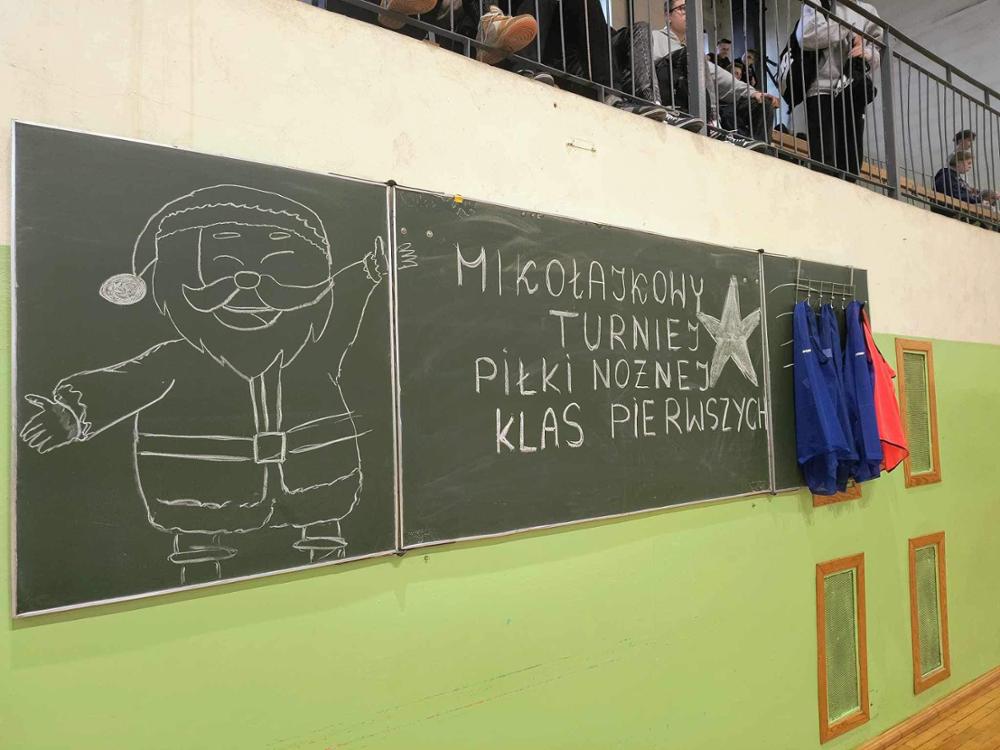 MIKOŁAJKOWY
TURNIEJ
PIŁKI NOŻNEJ
KLAS PIERWSZYCH